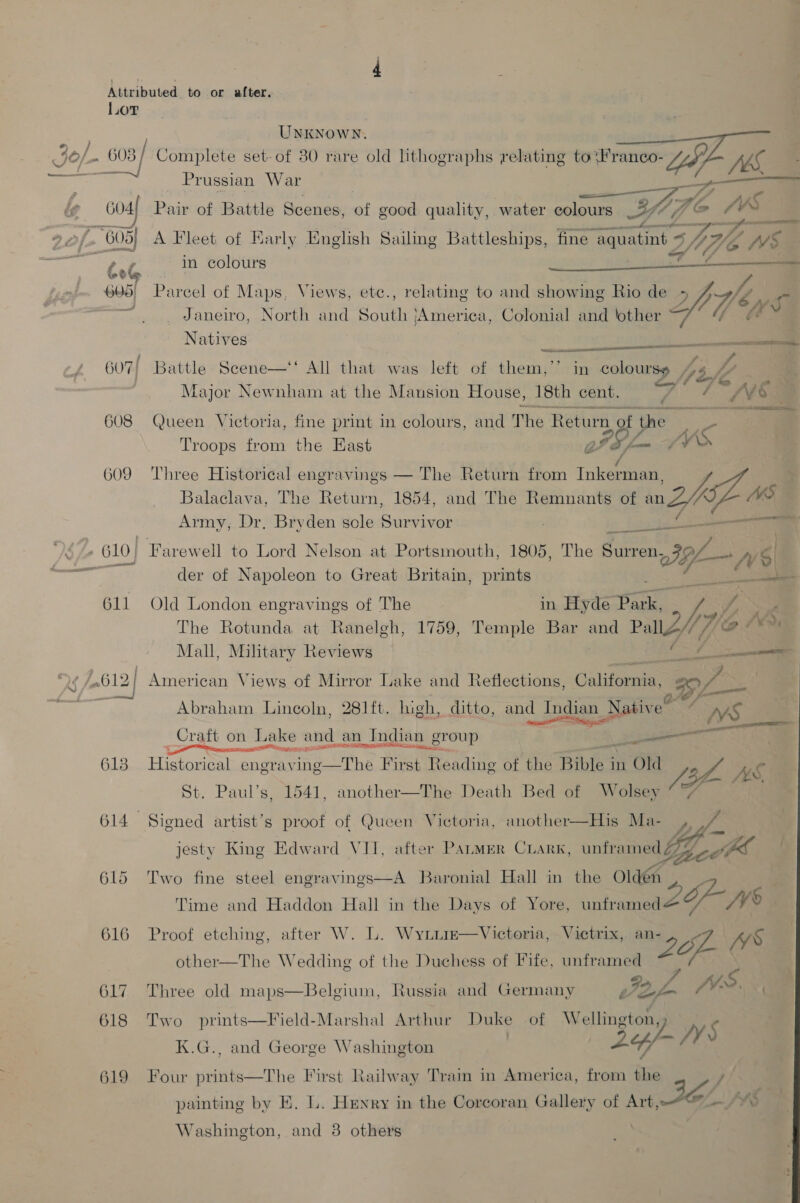 4
Attributed to or after.
LOT
UNKNOWN.
30/- 603 Complete set of 30 rare old lithographs relating to Franco-
Prussian War
604 Pair of Battle Scenes, of good quality, water colours
605 A Fleet of Early English Sailing Battleships, fine aquatint
in colours
606
605 Parcel of Maps, Views, etc., relating to and showing Rio de
Janeiro, North and South America, Colonial and other
Natives
607 Battle Scene—“ All that was left of them,” in colours,
Major Newnham at the Mansion House, 18th cent.
608 Queen Victoria, fine print in colours, and The Return of the
Troops from the East
609 Three Historical engravings — The Return from Inkerman,
Balaclava, The Return, 1854, and The Remnants of an
Army, Dr. Bryden sole Survivor
610 Farewell to Lord Nelson at Portsmouth, 1805, The Surren-
der of Napoleon to Great Britain, prints
611 Old London engravings of The in Hyde Park,
The Rotunda at Ranelgh, 1759, Temple Bar and Pall
Mall, Military Reviews
612 American Views of Mirror Lake and Reflections, California,
Abraham Lincoln, 281ft. high, ditto, and Indian Native
Craft on Lake and an Indian group
613 Historical engraving—The First Reading of the Bible in Old
St. Paul's, 1541, another—The Death Bed of Wolsey
614 Signed artist's proof of Queen Victoria, another—His Ma-
jesty King Edward VII, after PALMER CLARK, unframed
615 Two fine steel engravings—A Baronial Hall in the Olden
Time and Haddon Hall in the Days of Yore, unframed
616 Proof etching, after W. L. WYLLIE—Victoria, Victrix, an-
other—The Wedding of the Duchess of Fife, unframed
617 Three old maps—Belgium, Russia and Germany
618 Two prints—Field-Marshal Arthur Duke of Wellington,
K.G., and George Washington
619 Four prints—The First Railway Train in America, from the
painting by E. L. HENRY in the Corcoran Gallery of Art,
Washington, and 3 others